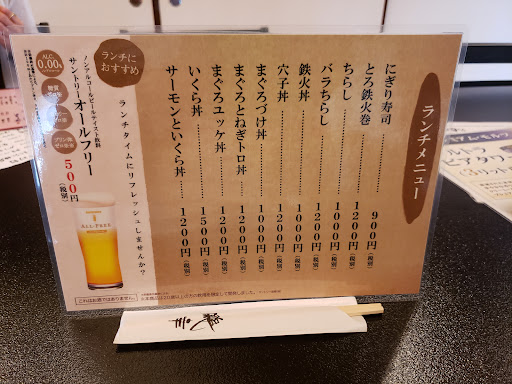 ランチメニュー
にぎり寿司 900円(税別)
とろ鉄火巻 1200円(税別)
ちらし 1000円(税別)
バラちらし 1200円(税別)
鉄火丼 1000円(税別)
穴子丼 1200円(税別)
まぐろづけ丼 1000円(税別)
まぐろとねぎトロ丼 1200円(税別)
まぐろユッケ丼 1200円(税別)
いくら丼 1500円(税別)
サーモンといくら丼 1200円(税別)
ランチに
おすすめ
ランチタイムにリフレッシュしませんか?
ノンアルコールビールテイスト飲料
サントリーオールフリー
500円
(税別)
ALC.
0.00%
糖質
プリン体
ALL-FREE
これはお酒ではありません。